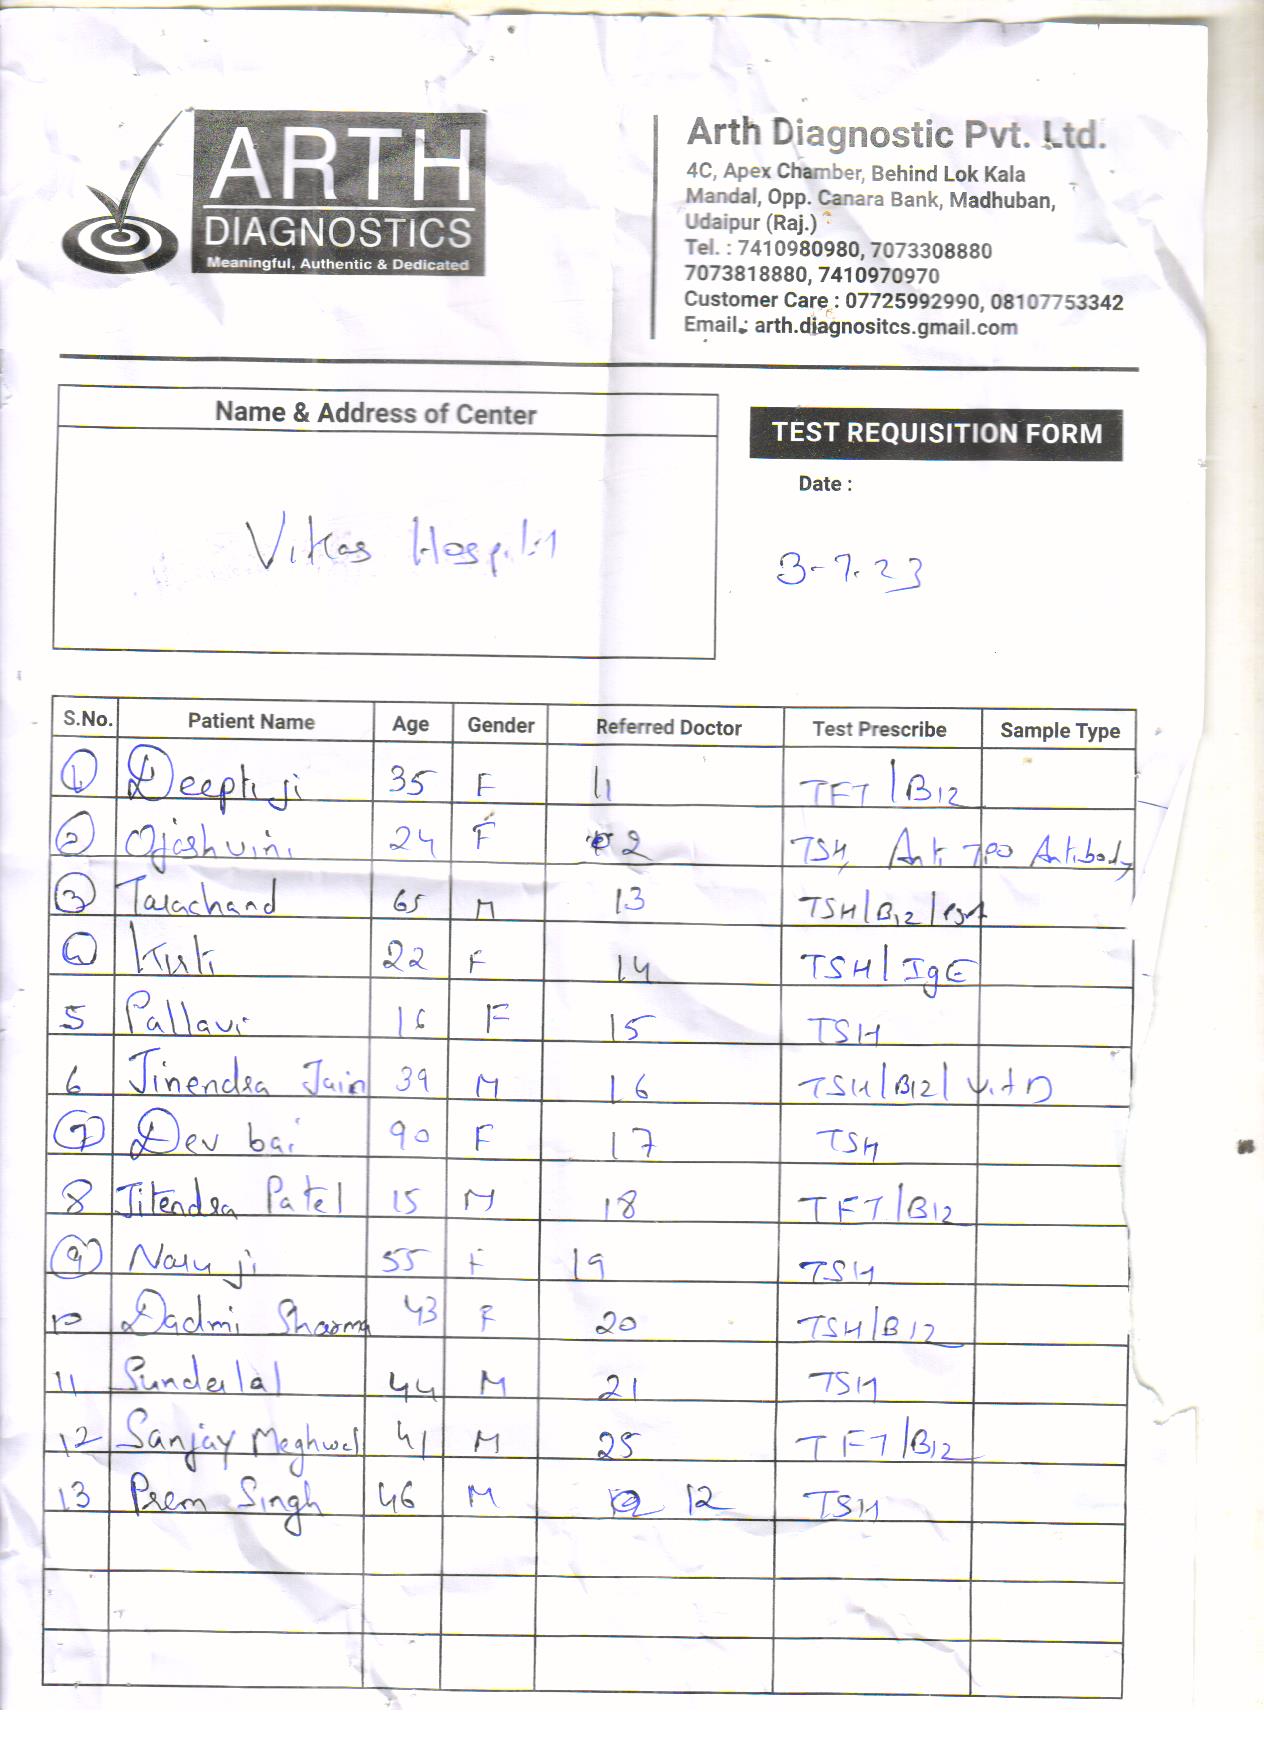 ARTH
DIAGNOSTICS
Meaningful, Authentic & Dedicated
Arth Diagnostic Pvt. Ltd.
4C, Apex Chamber, Behind Lok Kala
Mandal, Opp. Canara Bank, Madhuban,
Udaipur (Raj.)
Tel. : 7410980980, 7073308880
7073818880, 7410970970
Customer Care : 07725992990, 08107753342
Email : arth.diagnositcs.gmail.com
Name & Address of Center
Vikas Hospital
TEST REQUISITION FORM
Date :
3-7.23
S.No. Patient Name Age Gender Referred Doctor Test Prescribe Sample Type
1 Deepti ji 35 F 11 TFT/B12
2 Ojashvini 24 F 2 TSH, Anti TPO Antibody
3 Tarachand 65 M 13 TSH/B12/
4 Kirti 22 F 14 TSH/IgE
5 Pallavi 16 F 15 TSH
6 Jinendra Jain 39 M 16 TSH/B12/Vit D
7 Dev bai 90 F 17 TSH
8 Jitendra Patel 15 M 18 TFT/B12
9 ji 55 F 19 TSH
10 Dadmi Sharma 43 F 20 TSH/B12
11 Sunderlal 44 M 21 TSH
12 Sanjay Meghwal 41 M 25 TFT/B12
13 Prem Singh 46 M 12 TSH